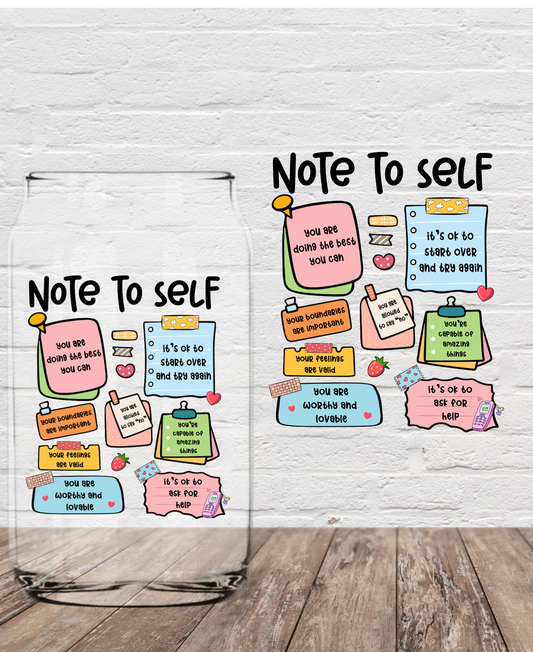 NOTE TO SELF
YOU ARE
DOING THE BEST
YOU CAN
IT'S OK TO
START OVER
AND TRY AGAIN
YOUR BOUNDARIES
ARE IMPORTANT
YOU ARE
ALLOWED
TO SAY "NO"
YOU'RE
CAPABLE OF
AMAZING
THINGS
YOUR FEELINGS
ARE VALID
YOU ARE
WORTHY AND
LOVABLE
IT'S OK TO
ASK FOR
HELP
NOTE TO SELF
YOU ARE
DOING THE BEST
YOU CAN
IT'S OK TO
START OVER
AND TRY AGAIN
YOUR BOUNDARIES
ARE IMPORTANT
YOU ARE
ALLOWED
TO SAY "NO"
YOU'RE
CAPABLE OF
AMAZING
THINGS
YOUR FEELINGS
ARE VALID
YOU ARE
WORTHY AND
LOVABLE
IT'S OK TO
ASK FOR
HELP